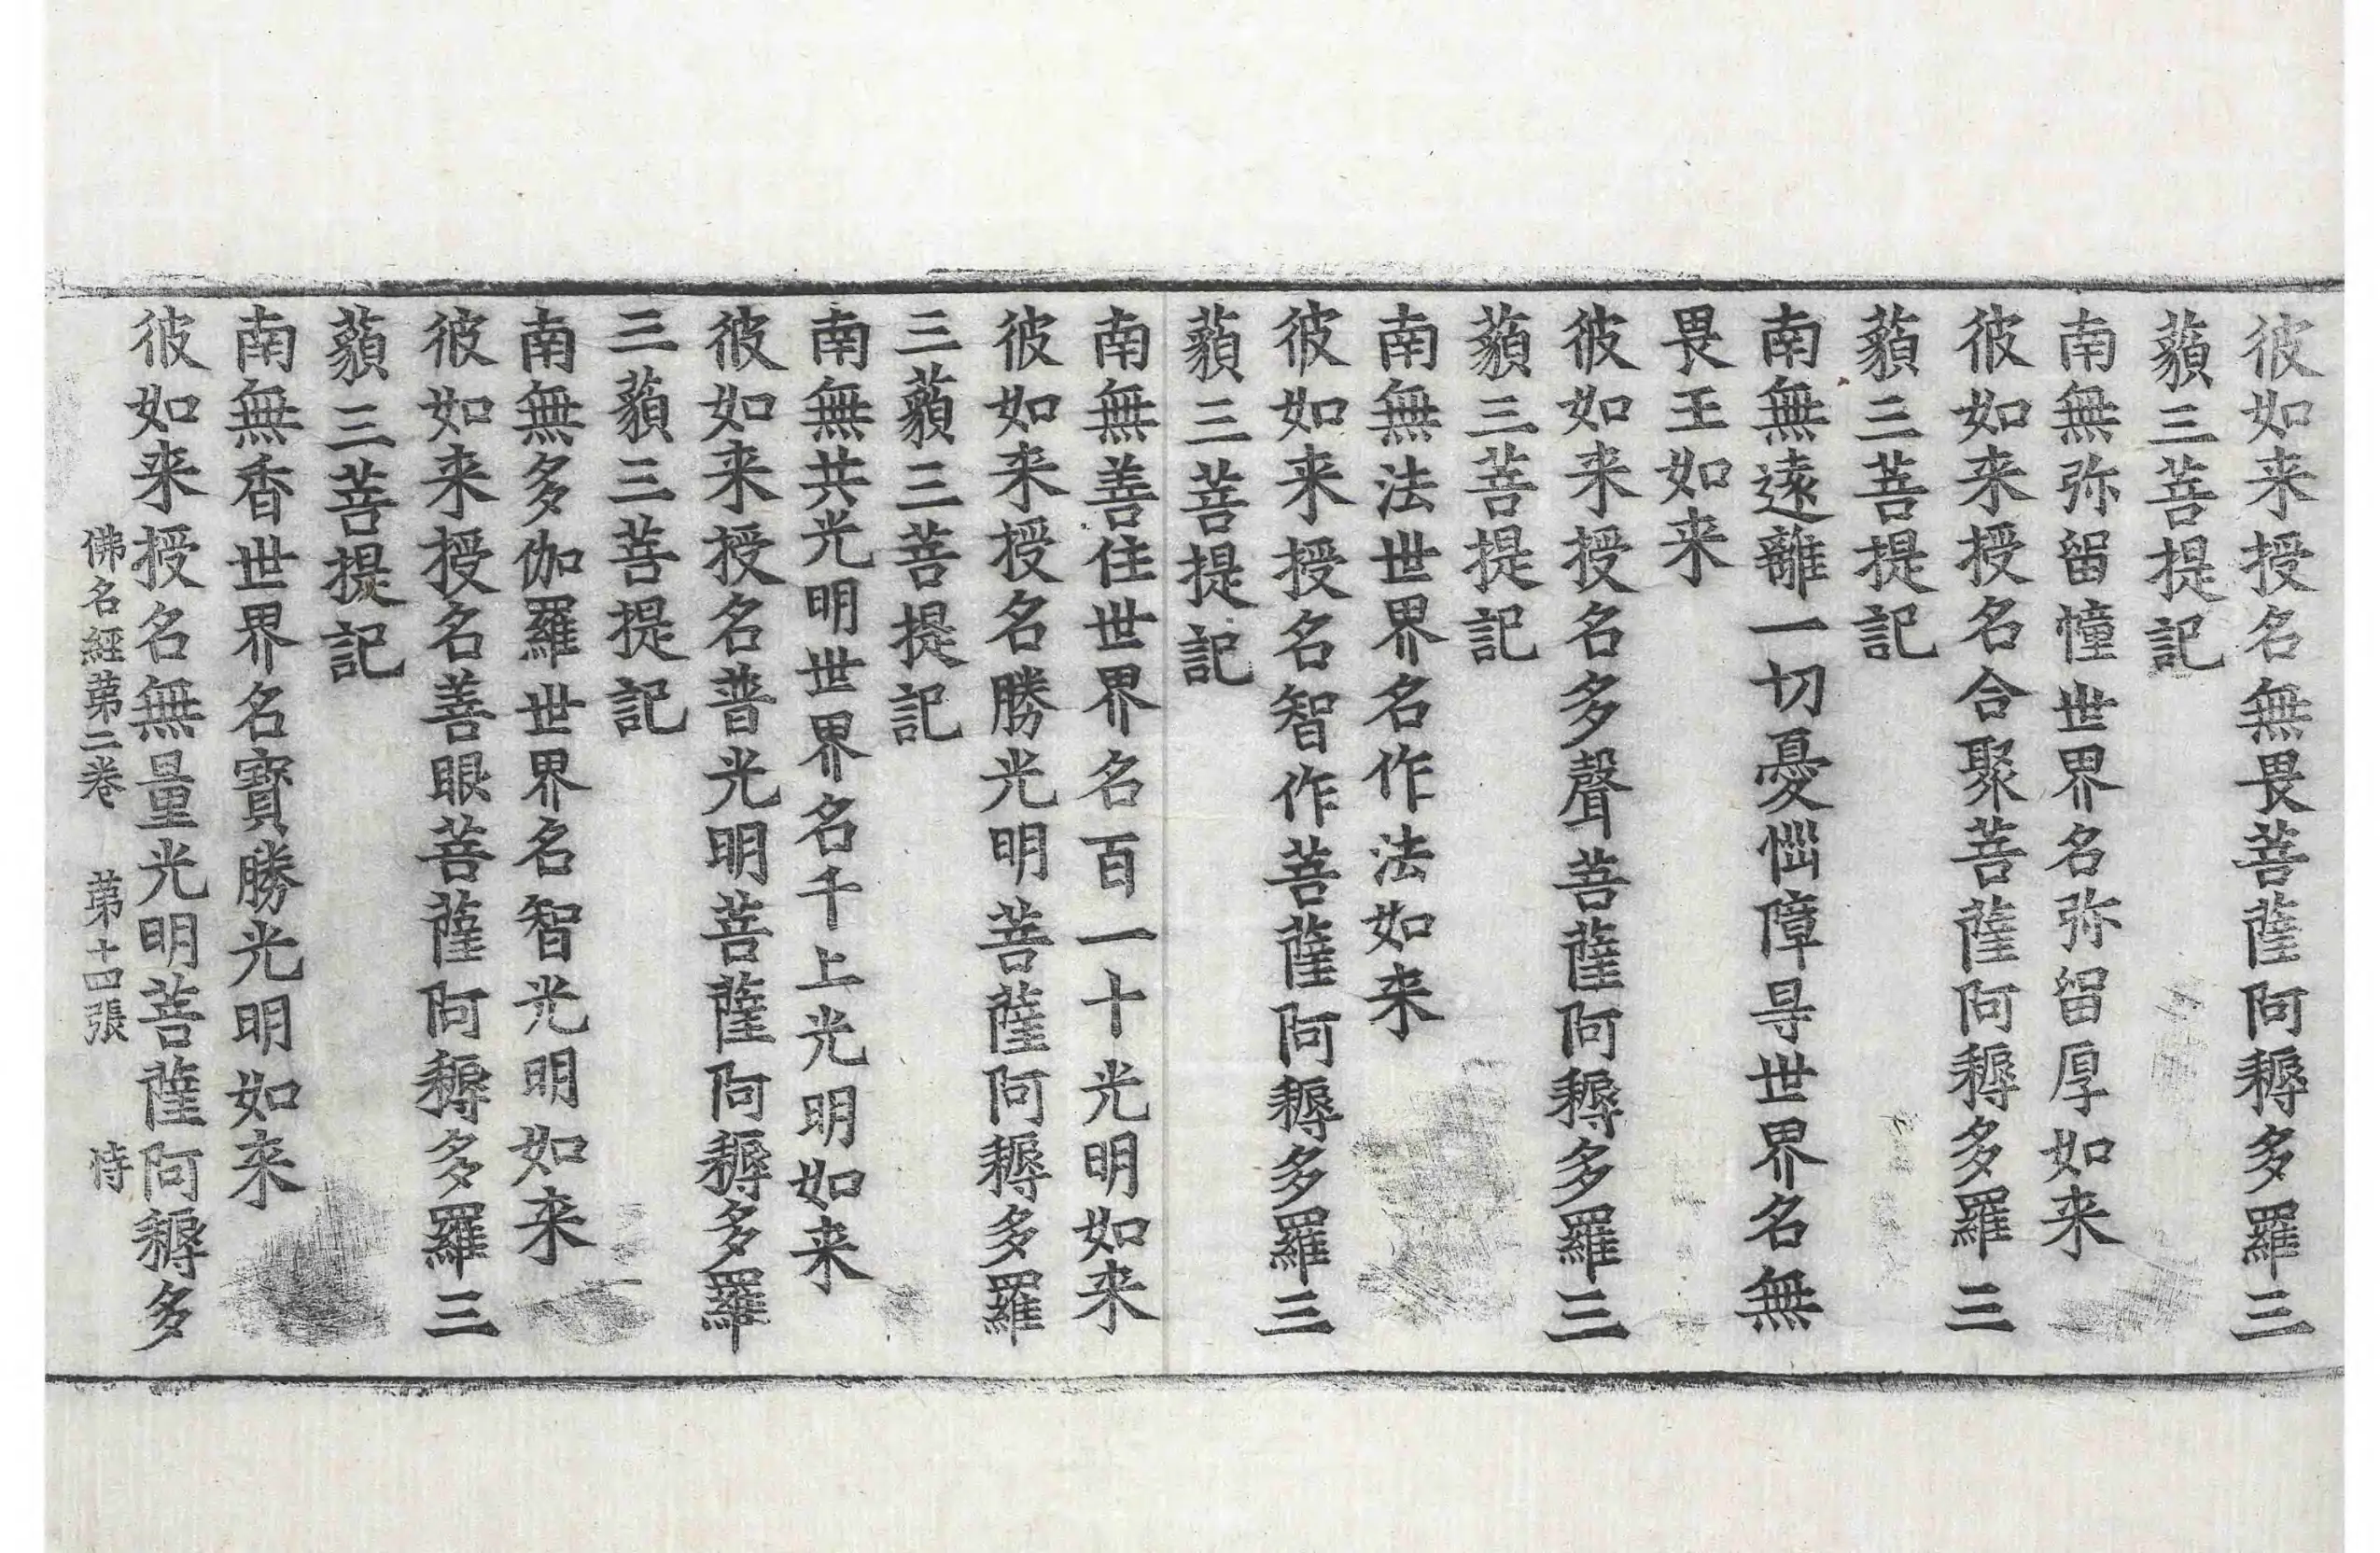 彼如来授名無畏菩薩阿耨多羅三
藐三菩提記
南無弥留憧世界名弥留厚如来
彼如来授名合聚菩薩阿耨多羅三
藐三菩提記
南無遠離一切憂惱障㝵世界名無
畏王如来
彼如来授名多聲菩薩阿耨多羅三
藐三菩提記
南無法世界名作法如来
彼如来授名智作菩薩阿耨多羅三
藐三菩提記
南無善住世界名百一十光明如来
彼如来授名勝光明菩薩阿耨多羅
三藐三菩提記
南無共光明世界名千上光明如来
彼如来授名普光明菩薩阿耨多羅
三藐三菩提記
南無多伽羅世界名智光明如来
彼如来授名善眼菩薩阿耨多羅三
藐三菩提記
南無香世界名寶勝光明如来
彼如来授名無量光明菩薩阿耨多
佛名經第二卷 第十四張 恃